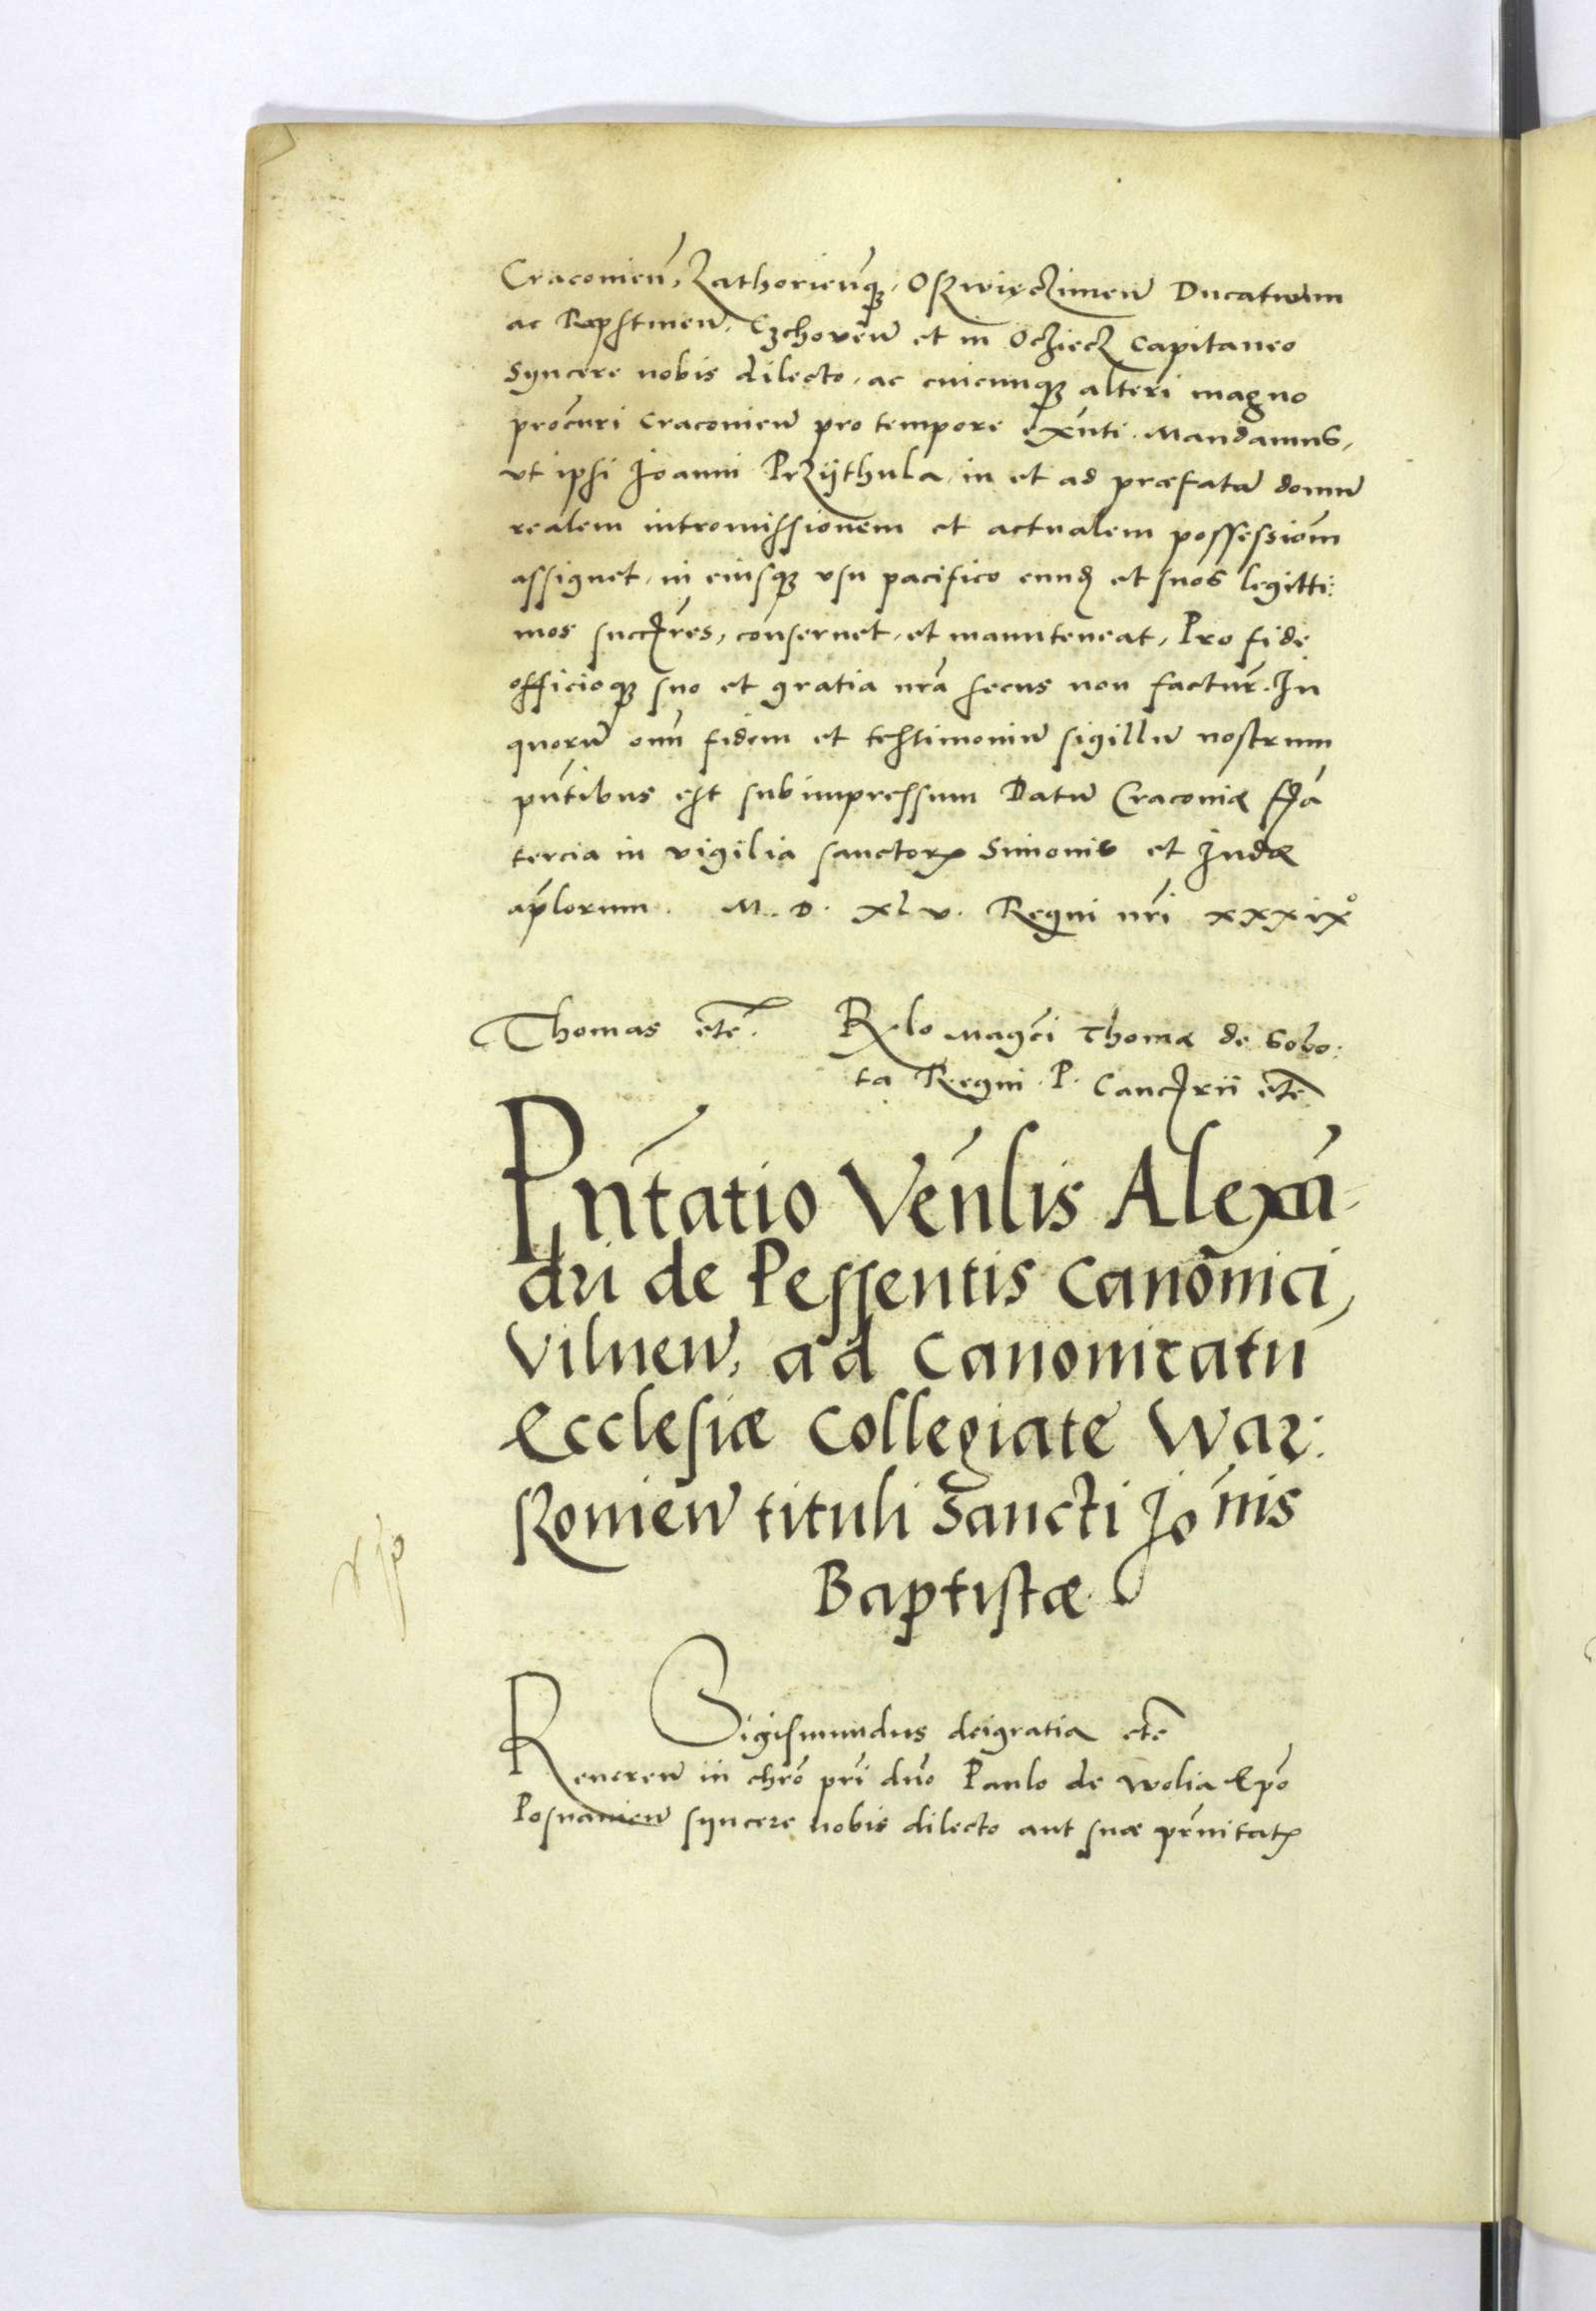 Craconieñ, Zathorieñq₃, Oszwięczimeñ Ducatuum
ac Rapstineñ, Czchoveñ et in Ocziecz Capitaneo
Syncere nobis dilecto, ac cuicunq₃ alteri magno
procuri Craconieñ pro tempore exñti. Mandamus,
vt ipsi Joanni Przÿthula, in et ad præfatũ domũ
realem intromissionem et actualem possessiõm
assignet, in eiusq₃ vsu pacifico eund̃ et suos legitti:
mos succr̃es, conservet, et manuteneat, Pro fide
officioq₃ suo et gratia nr̃a secus non factur̃. In
quorũ om̃ fidem et testimoniũ sigillũ nostrum
pñtibus est subimpressum Datũ Craconiæ fr̃a
tercia in vigilia sanctorꝝ Simonis et Judæ
apl̃orum. M. D. XLV. Regni nr̃i xxxix°
Thomas etc̃. Rl̃o Magc̃i Thomæ de Sobo:
ta Regni P. Cancr̃ii etc̃
Pñtatio Veñlis Alexã-
dri de Pessentis Canonici,
Vilneñ, ad Canonicatũ
Ecclesiæ Collegiate War:
szonieñ tituli Sancti Jo͠nis
Baptistæ
Sigismundus dei gratia etc̃
Revereñ in chr̃o pr̃i dño Paulo de Wolia Ep̃o
Posnanieñ syncere nobis dilecto aut suæ pr̃nitatꝭ